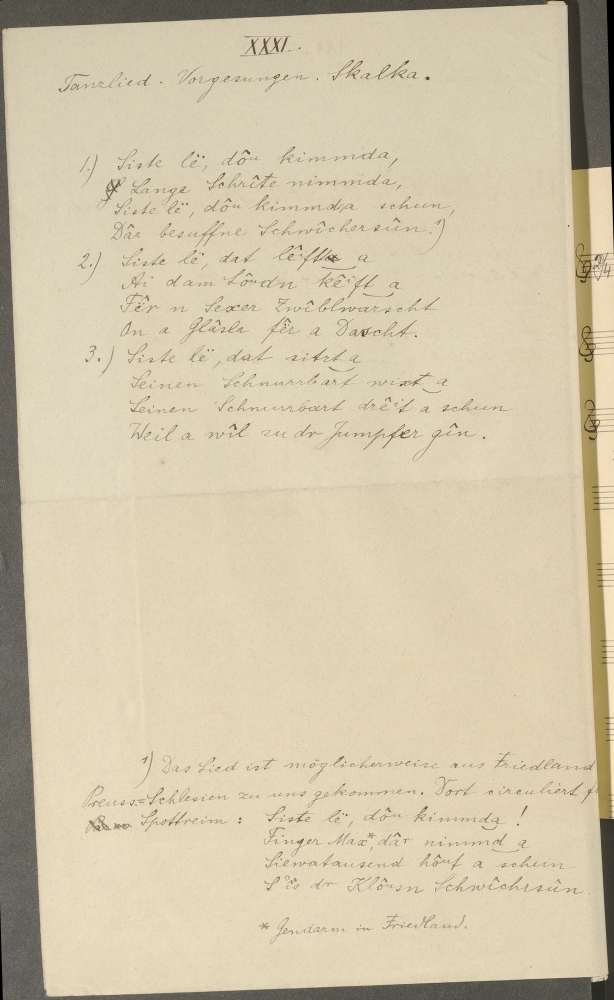 XXXI.
Tanzlied. Vorgesungen. Skalka.
1.) Siste lë, dôu kimmda,
Lange Schrîte nimmda,
Siste lë, dôu kimmda schun,
Dâr besuffne Schwîchersûn.¹)
2.) Siste lë, dat lêift a
Ai dam Lôudn kêift a
Fêr n Sexer Zwîblwarscht
On a Glâsla fêr a Dascht.
3.) Siste lë, dat sitzt a
Seinen Schnurrbart wixt a
Seinen Schnurrbart drêit a schun
Weil a wîl zu dr Jumpfer gîn.
¹) Das Lied ist möglicherweise aus Friedland
Preuss.=Schlesien zu uns gekommen. Dort circuliert
Spottreim: Siste lë, dôu kimmda!
Finger Max*, dâr nimmd a
Siewatausend hôut a schun
S is dr Klôusn Schwîchrsûn.
* Gendarm in Friedland.